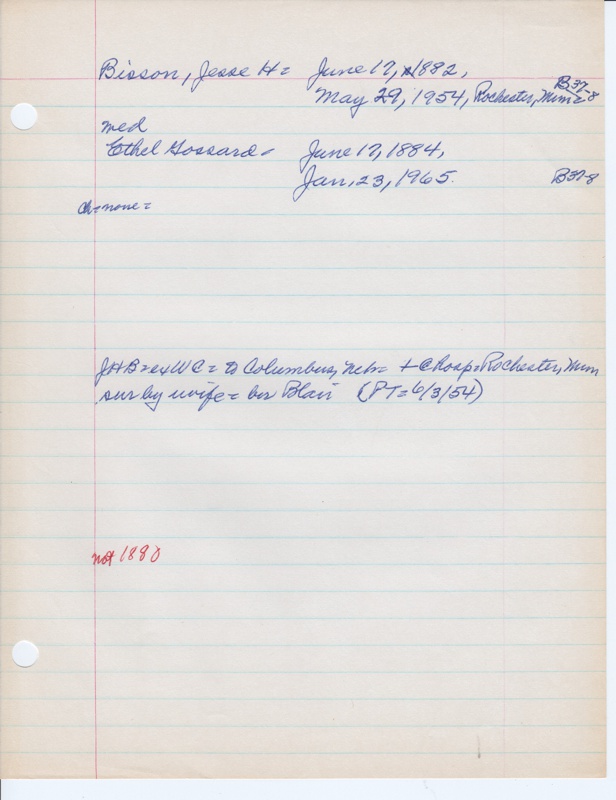 Bisson, Jesse H = June 17, 1882,
May 29, 1954, Rochester, Minn = B37-8
med
Ethel Gossard - June 17, 1884,
Jan, 23, 1965. B37-8
ch = none =
JHB = ex WC = to Columbus, Neb = + @ Hosp = Rochester, Minn
sur by wife = bur Blair (PT = 6/3/54)
not 1880